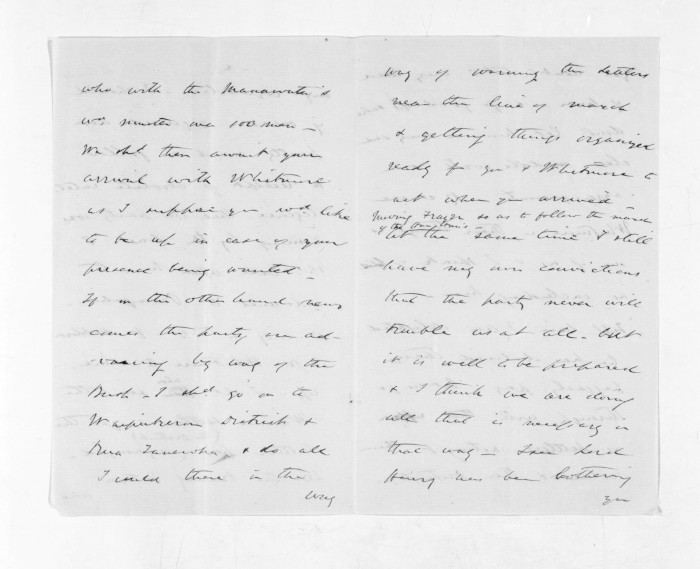 who with the Manawatu's
wd muster over 100 men –
We shd then await your
arrival with Whitmore
as I suppose you wod like
to be up in case of your
presence being wanted –
If on the other hand news
comes the party are ad-
vancing by way of the
Bush – I shd go on to
Waipukurau District &
Rua Taniwha & do all
I could there in the
way
way of warning the settlers
near the line of march
& getting things organized
ready for you & Whitmore to
act when you arrived –
moving Frazer so as to follow the march
of the
at the same time I still
have my own convictions
that the party never will
trouble us at all – but
it is well to be prepared
& I think we are doing
all that is necessary in
that way – I see Lord
Henry has been bothering
you